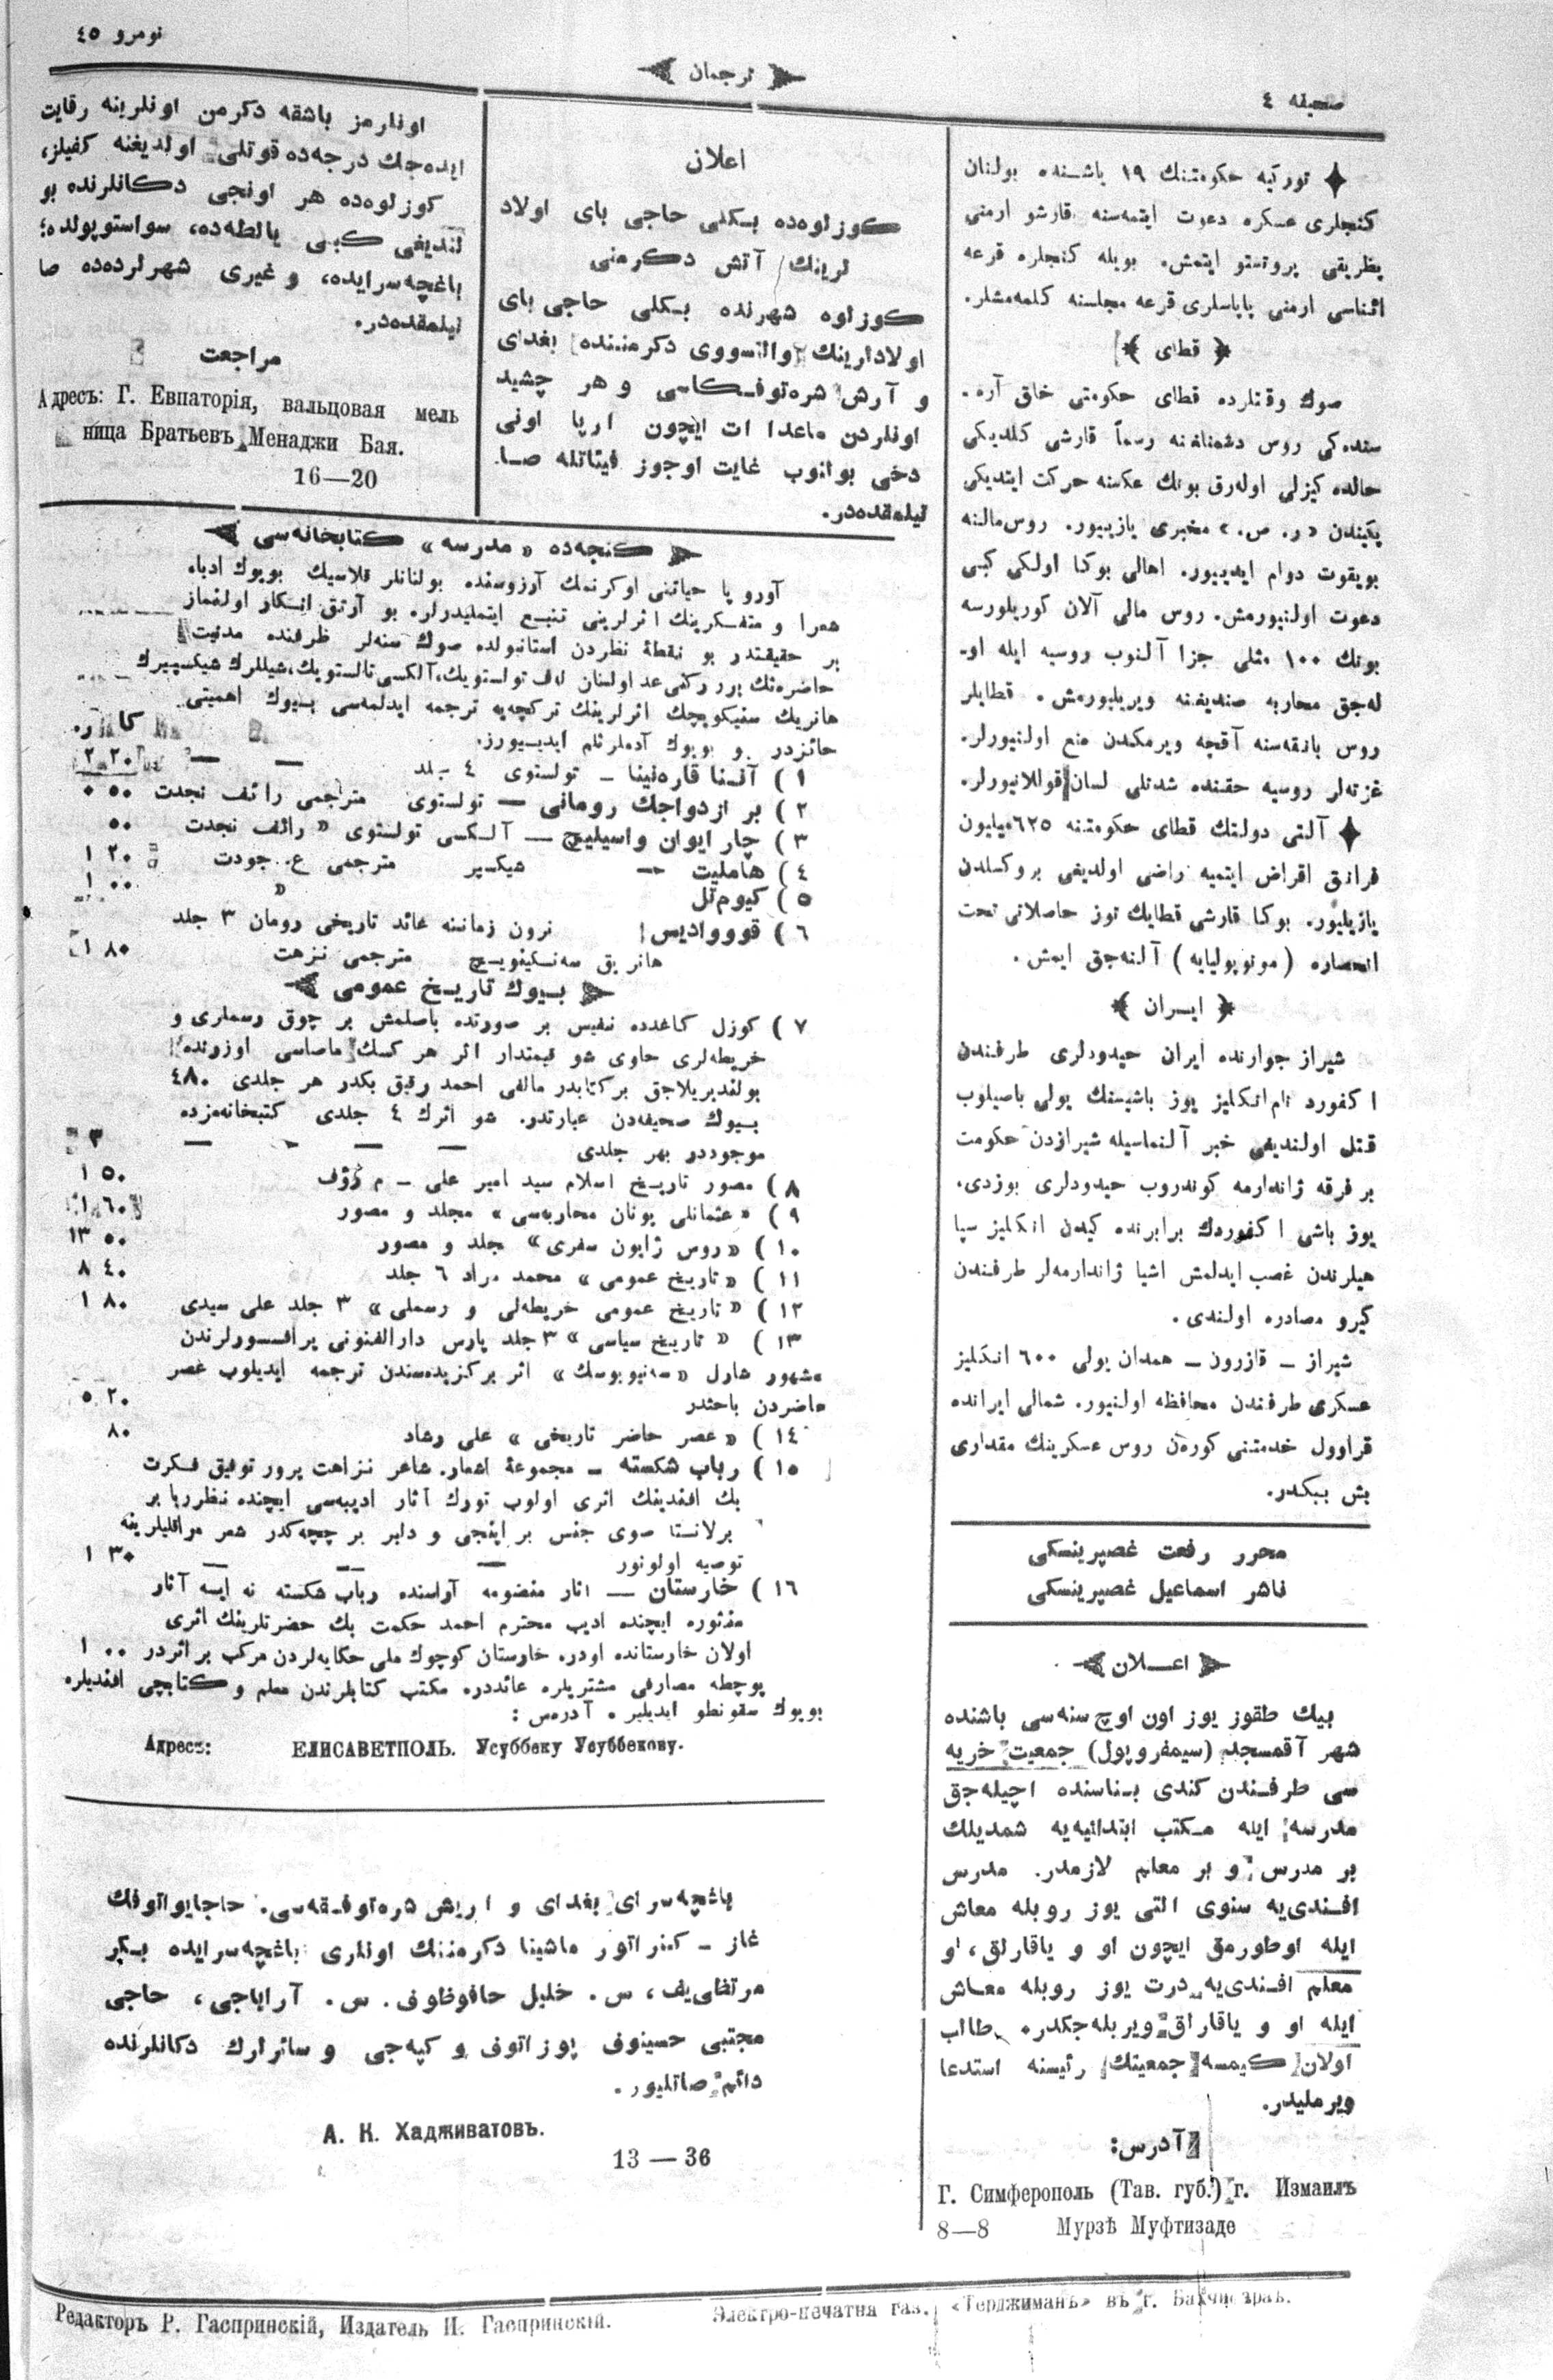 صحیفه ٤
ترجمان
نومرو ٤٥
تورکیه حکومتنك ١٩ یاشنده بولنان
کنجلری عسکره دعوت ایتمه‌سنه قارشو ارمنی
بطریقی پروتستو ایتمش. بویله کنجلره قرعه
اثناسی ارمنی پاپاسلری قرعه مجلسنه کلمه‌مشلر.
قطای
صوك وقتلرده قطای حکومتی خلق آره‌
سنده‌کی روس دشمنلغنه رسماً قارشی کلدیکی
حالده کیزلی اوله‌رق بونك عکسنه حرکت ایتدیکی
پکیندن «ر. ص.» مخبری یازییور. روس مالنه
بویقوت دوام ایدییور. اهالی بوکا اولکی کبی
دعوت اولنیورمش. روس مالی آلان کوریلورسه
بونك ١٠٠ مثلی جزا آلنوب روسیه ایله او‌
له‌جق محاربه صندیغنه ویریلیورمش. قطایلر
روس بانقه‌سنه آقچه ویرمکدن منع اولنیورلر.
غزته‌لر روسیه حقنده شدتلی لسان قوللانیورلر.
آلتی دولتك قطای حکومتنه ٦٢٥ میلیون
فرانق اقراض ایتمیه راضی اولدیغی بروکسلدن
یازیلیور. بوکا قارشی قطایك توز حاصلاتی تحت
انحصاره (مونوپولیایه) آلنه‌جق ایمش.
ایران
شیراز جوارنده ایران حیدودلری طرفندن
اکفورد نام انکلیز یوز باشیسنك یولی باصیلوب
قتل اولندیغی خبر آلنماسیله شیرازدن حکومت
بر فرقه ژاندارمه کوندروب حیدودلری بوزدی.
یوز باشی اکفوردك برابرنده کیدن انکلیز سپا
هیلرندن غصب ایدلمش اشیا ژاندارمه‌لر طرفندن
کیرو مصادره اولندی.
شیراز – قازرون – همدان یولی ٦٠٠ انکلیز
عسکری طرفندن محافظه اولنیور. شمالی ایرانده
قراوول خدمتنی کوره‌ن روس عسکرینك مقداری
بش بیکدر.
محرر رفعت غصپرینسکی
ناشر اسماعیل غصپرینسکی
اعلان
بیك طقوز یوز اون اوچ سنه‌سی باشنده
شهر آقمسجد (سیمفروپول) جمعیت خریه
سی طرفندن کندی بناسنده اچیله‌جق
مدرسه ایله مکتب ابتدائیه‌یه شمدیلك
بر مدرس و بر معلم لازمدر. مدرس
افندی‌یه سنوی التی یوز روبله معاش
ایله اوطورمق ایچون او و یاقارلق، او
معلم افندی‌یه درت یوز روبله معاش
ایله او و یاقارلق ویریله‌جکدر. طالب
اولان کیمسه جمعیتك رئیسنه استدعا
ویرملیدر.
آدرس:
Г. Симферополь (Тав. губ.) г. Измаилъ
8—8 Мурзѣ Муфтизаде
اعلان
کوزلوه‌ده بکلی حاجی بای اولاد
لرینك آتش دکرمنی
کوزلوه شهرنده بکلی حاجی بای
اولادلرینك والتسووی دکرمننده بغدای
و آرش شره‌توفکاسی و هر چشید
اونلردن ماعدا ات ایچون ارپا اونی
دخی بولنوب غایت اوجوز فیئاتله صا
تیلمقده‌در.
اونلرمز باشقه دکرمن اونلرینه رقابت
ایده‌جك درجه‌ده قوتلی اولدیغنه کفیلز،
کوزلوه‌ده هر اونجی دکانلرنده بو
لندیغی کبی یالطه‌ده، سواستوپولده؛
باغچه‌سرایده، و غیری شهرلرده‌ده صا
تیلمقده‌در.
مراجعت
Адресъ: Г. Евпаторія, вальцовая мель
ница Братьевъ Менаджи Бая.
16—20
کنجه‌ده «مدرسه» کتابخانه‌سی
آوروپا حیاتنی اوکرنمك آرزوسنده بولنانلر قلاسیك بویوك ادبا،
شعرا و متفکرینك اثرلرینی تتبع ایتملیدرلر. بو آرتق انکار اولنماز
بر حقیقتدر بو نقطۀ نظردن استانبولده صوك سنه‌لر ظرفنده مدنیت
حاضره‌نك برر رکنی عد اولنان لاف تولستویك، آلکسی تالستویك، شیللرك شیکسپیرك
هانریك سنیکویچك اثرلرینك ترکچه‌یه ترجمه ایدلمه‌سی بیوك اهمیتی
حائزدر و بویوك آدملر ایدییورز.
١) آننا قاره‌نینا – تولستوی ٤ جلد — — ٢ ٢٠
٢) بر ازدواجك رومانی — تولستوی مترجمی رائف نجدت ٥٠
٣) چار ایوان واسیلیچ — آلکسی تولستوی « رائف نجدت ٥٠
٤) هاملیت — شیکسپیر مترجمی ع. جودت ١ ٢٠
٥) کیوم‌تل « ١ ٠٠
٦) قووادیس! نرون زماننه عائد تاریخی رومان ٣ جلد
هانریق سه‌نکیفویچ مترجمی نزهت ١ ٨٠
بیوك تاریخ عمومی
٧) کوزل کاغدده نفیس بر صورتده باصلمش بر چوق رسملری و
خریطه‌لری حاوی شو قیمتدار اثر هر کسك ماصاسی اوزرنده
بولندیریلاجق بر کتابدر مالفی احمد رفیق بکدر هر جلدی ٤٨٠
بیوك صحیفه‌دن عبارتدر. شو اثرك ٤ جلدی کتبخانه‌مزده
موجوددر بهر جلدی — — — ٣
٨) مصور تاریخ اسلام سید امیر علی – م رؤف ١ ٥٠
٩) «عثمانلی یونان محاربه‌سی» مجلد و مصور ١ ٦٠
١٠) «روس ژاپون سفری» جلد و مصور ١٣ ٥٠
١١) «تاریخ عمومی» محمد مراد ٦ جلد ٨ ٤٠
١٢) «تاریخ عمومی خریطه‌لی و رسملی» ٣ جلد علی سیدی ١ ٨٠
١٣) «تاریخ سیاسی» ٣ جلد پارس دارالفنونی پرافسورلرندن
مشهور شارل «سه‌نیوبوسك» اثر برکزیده‌سندن ترجمه ایدیلوب عصر
حاضردن باحثدر ٥ ٢٠
١٤) «عصر حاضر تاریخی» علی رشاد ٨٠
١٥) رباب شکسته – مجموعۀ اشعار. شاعر نزاهت پرور توفیق فکرت
بك افندینك اثری اولوب تورك آثار ادبیه‌سی ایچنده نظرربا بر
برلانتا صوی جنس بر اینجی و دلبر بر چیچه‌کدر شعر مراقلیلرینه
توصیه اولونور — — — ١ ٣٠
١٦) خارستان — اثار منضومه آراسنده رباب شکسته نه ایسه آثار
منثوره ایچنده ادیب محترم احمد حکمت بك حضرتلرینك اثری
اولان خارستانده اودر. خارستان کوچوك ملی حکایه‌لردن مرکب بر اثردر ١ ٠٠
پوچطه مصارفی مشتریلره عائددر. مکتب کتابلرندن معلم و کتابچی افندیلره
بویوك سقونطو ایدیلیر. آدرس:
Адресъ: ЕЛИСАВЕТПОЛЬ. Усуббеку Усуббекову.
باغچه‌سرای بغدای و اریش شره‌توفقه‌سی. حاجایواتوفك
غاز – کنراتور ماشینا دکرمننك اونلری باغچه‌سرایده بکیر
مرتضی‌یف، س. خلیل حافوظوف. س. آراباجی، حاجی
مجتبی حسینوف پوزاتوف و کپه‌جی و سائرلرك دکانلرنده
دائم صاتلیور.
А. К. Хадживатовъ.
13 — 36
Редакторъ Р. Гаспринскій, Издатель И. Гаспринскій.
Электро-печатня газ. «Терджиманъ» въ г. Бахчисараѣ.